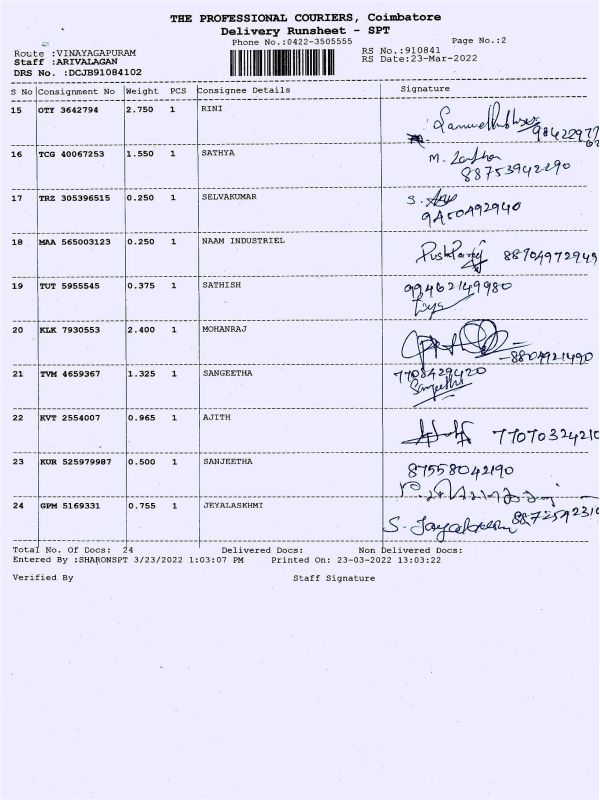 THE PROFESSIONAL COURIERS, Coimbatore
Delivery Runsheet - SPT
Phone No.:0422-3505555 Page No.:2
Route :VINAYAGAPURAM RS No.:910841
Staff :ARIVALAGAN RS Date:23-Mar-2022
DRS No. :DCJB91084102
S No Consignment No Weight PCS Consignee Details Signature
15 OTY 3642794 2.750 1 RINI
16 TCG 40067253 1.550 1 SATHYA
M.
88753942290
17 TRZ 305396515 0.250 1 SELVAKUMAR
S.
9450492940
18 MAA 565003123 0.250 1 NAAM INDUSTRIEL
88704972949
19 TUT 5955545 0.375 1 SATHISH
99462149980
20 KLK 7930553 2.400 1 MOHANRAJ
8804921490
21 TVM 4659367 1.325 1 SANGEETHA
7708429420
Sangeetha
22 KVT 2554007 0.965 1 AJITH
7707032421
23 KUR 525979987 0.500 1 SANJEETHA
87558042190
24 GPM 5169331 0.755 1 JEYALASKHMI
S.
Total No. Of Docs: 24 Delivered Docs: Non Delivered Docs:
Entered By :SHARONSPT 3/23/2022 1:03:07 PM Printed On: 23-03-2022 13:03:22
Verified By Staff Signature